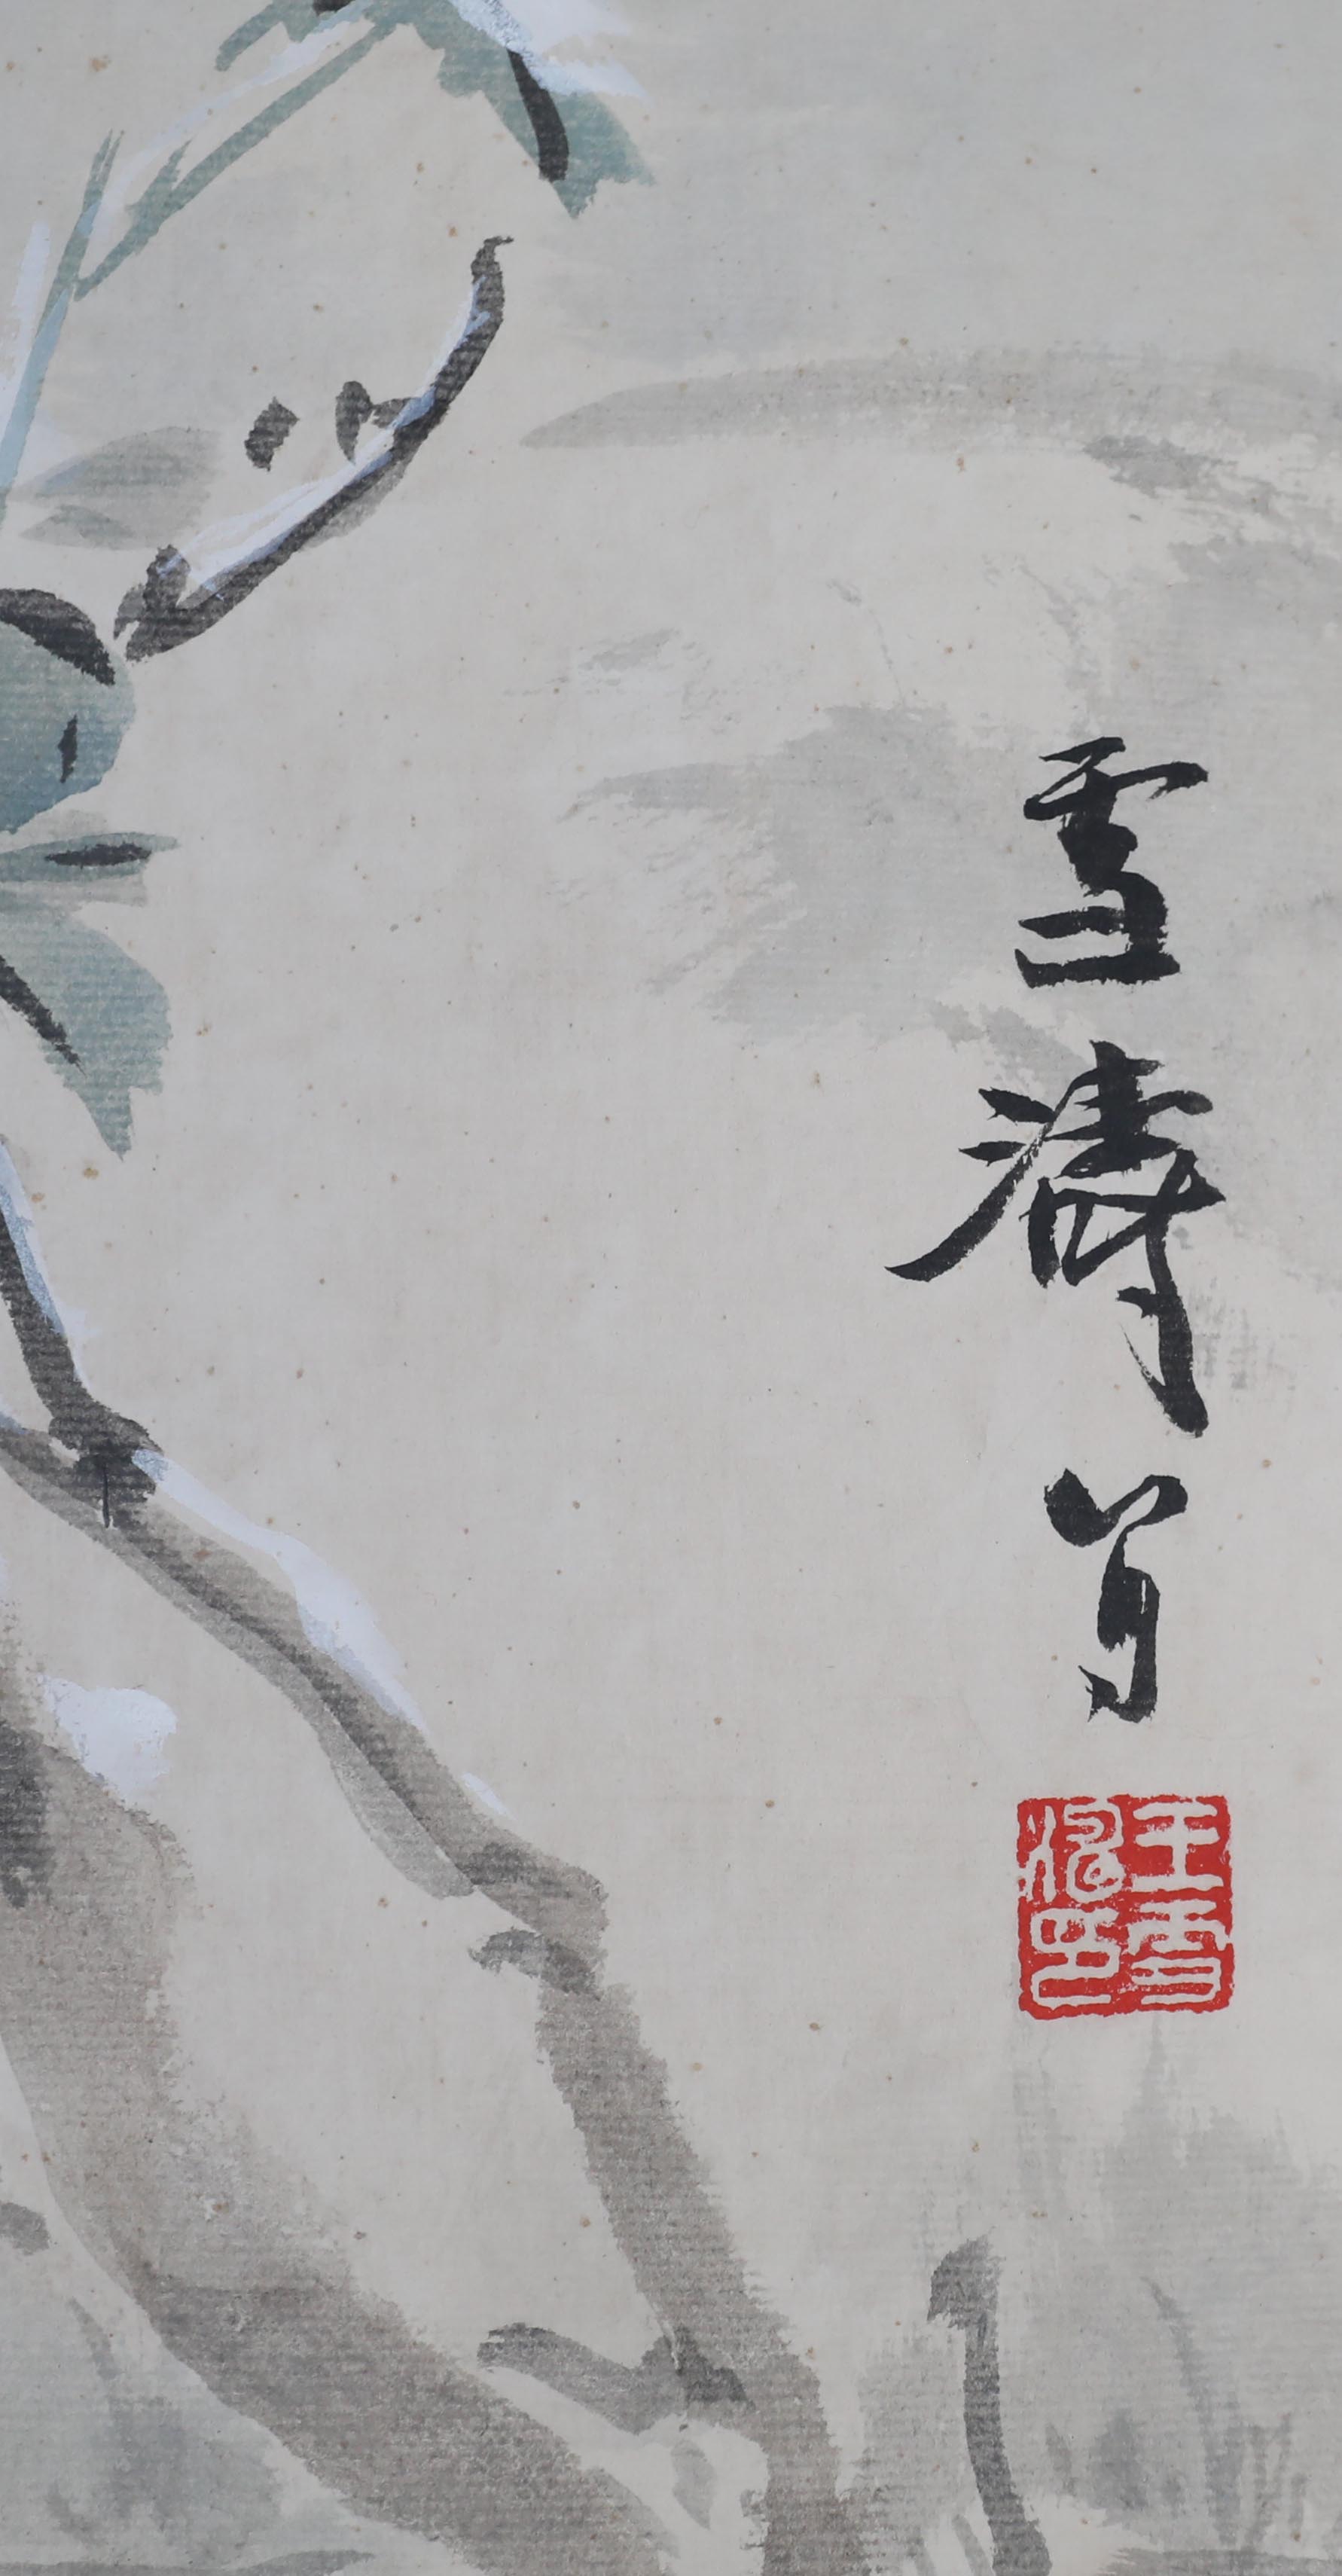 雪濤寫
王雪
濤印